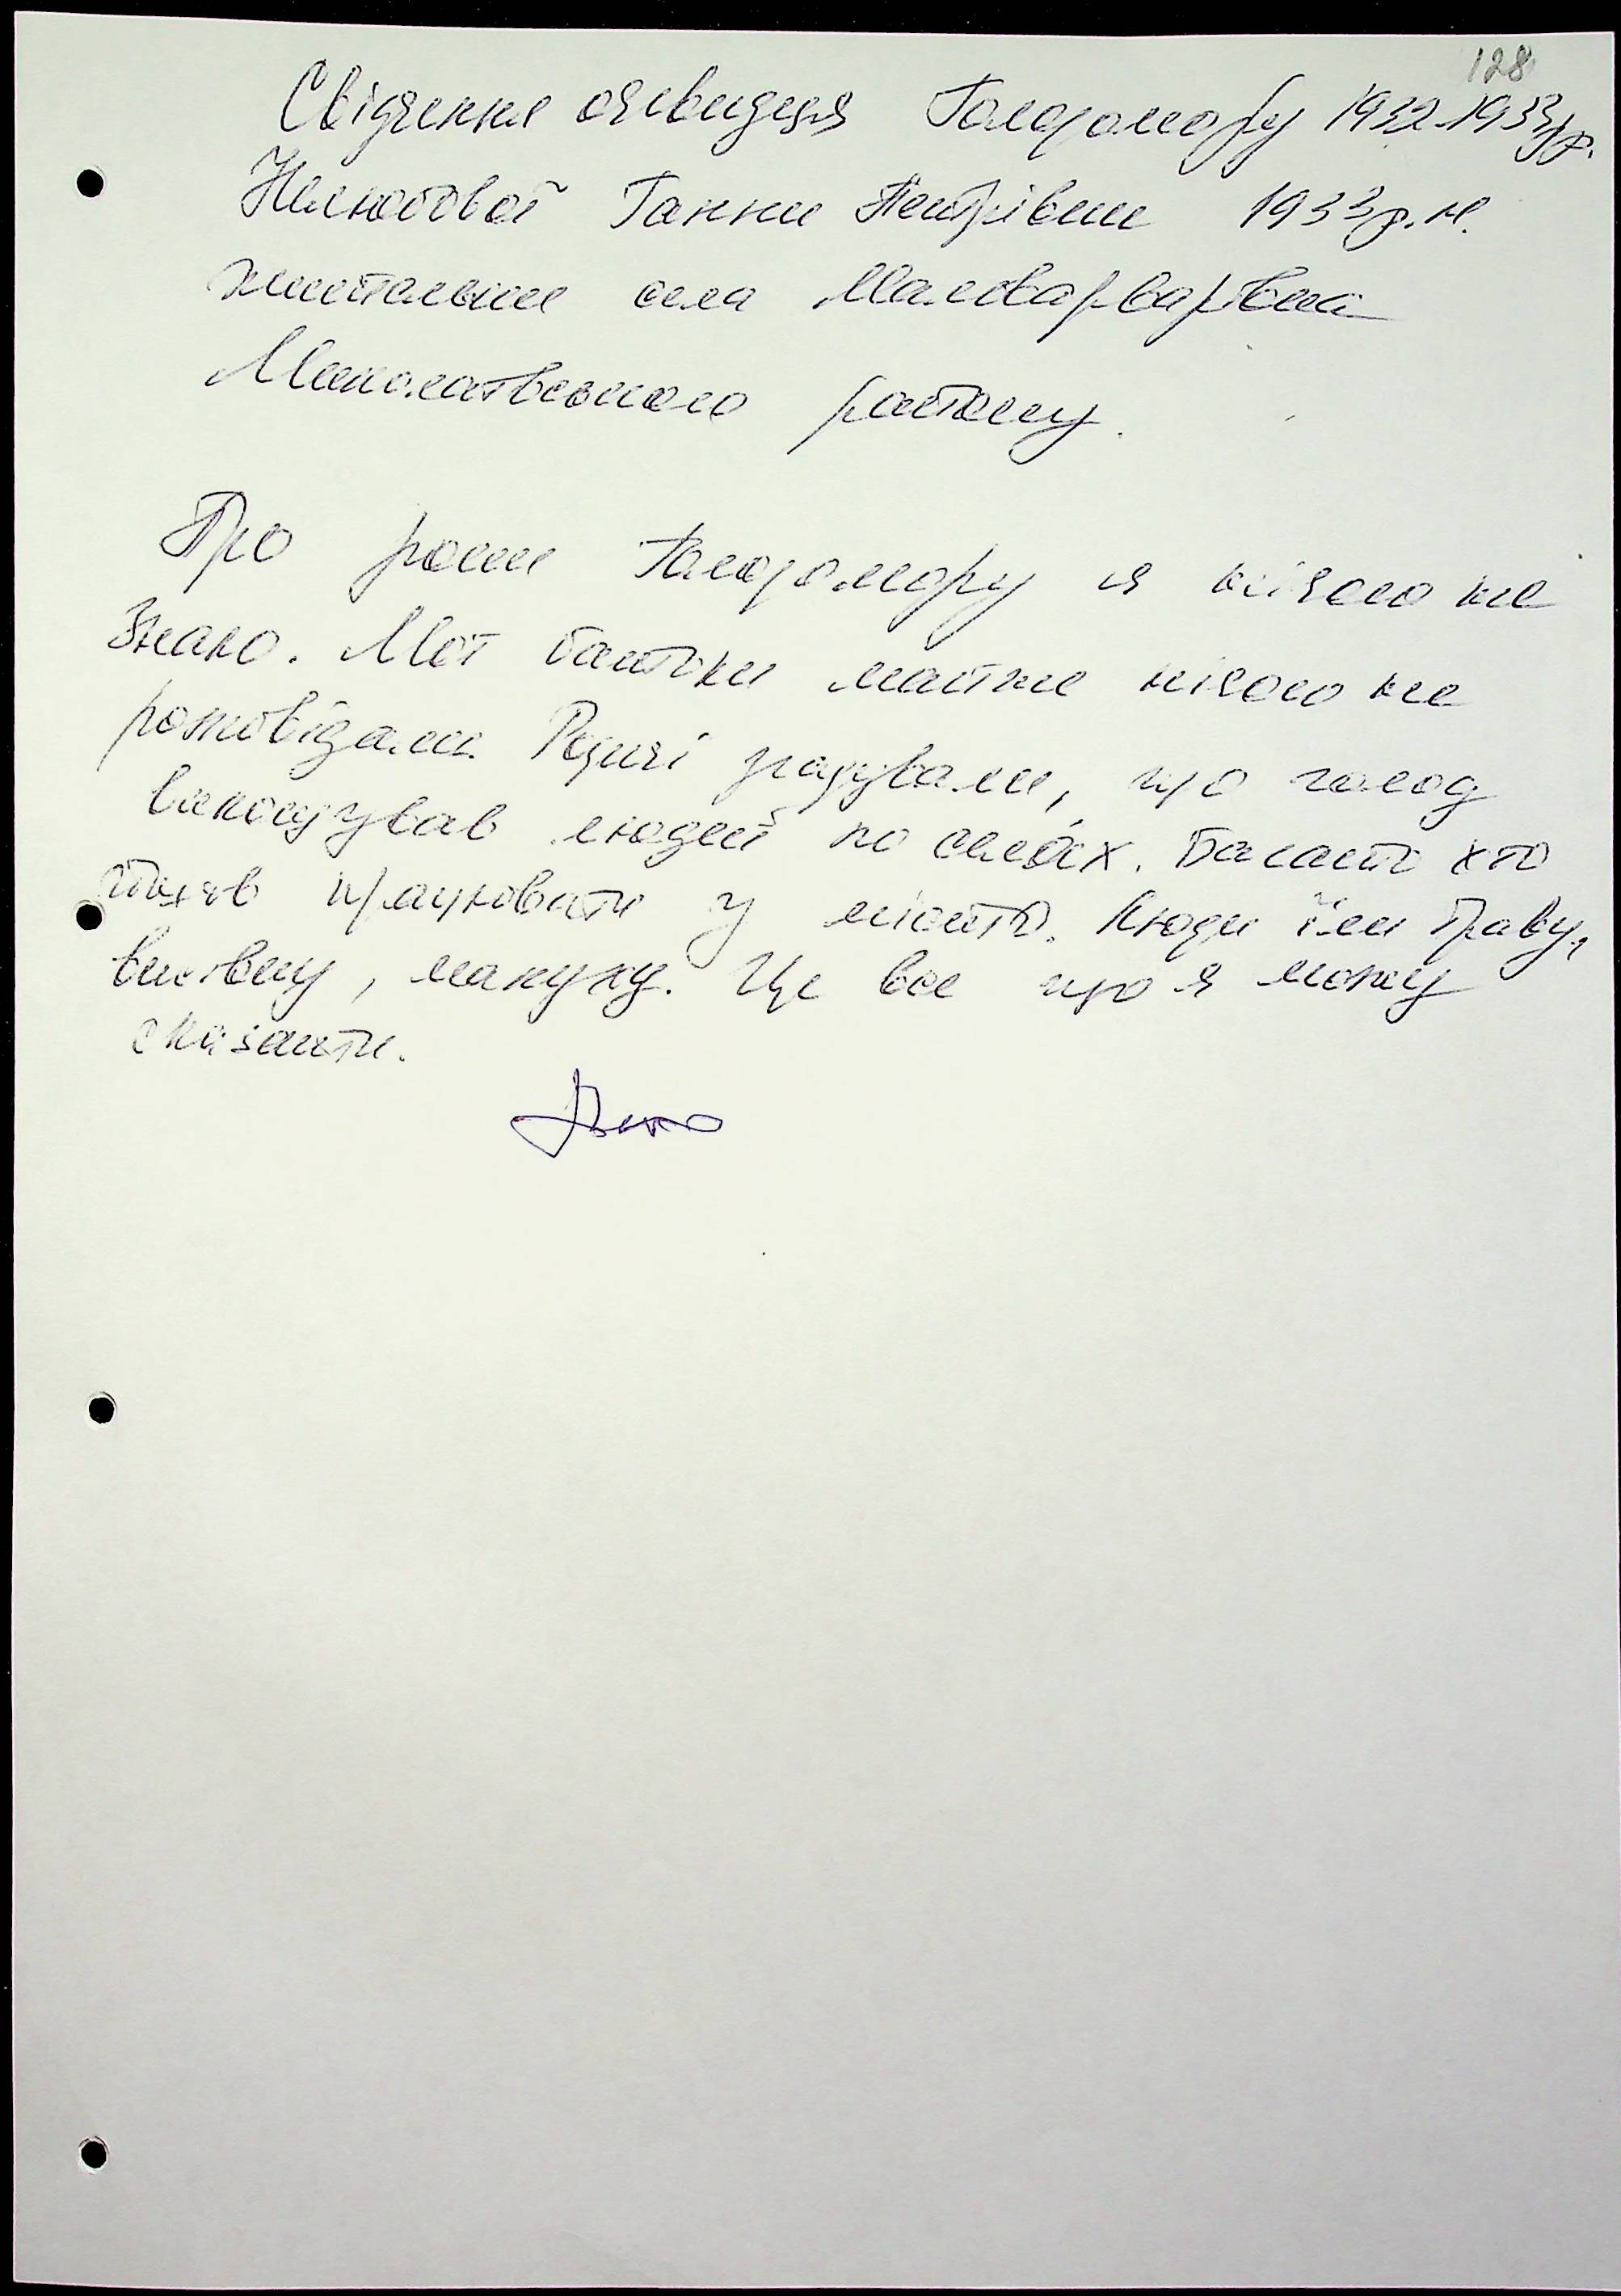 128
Свідчення очевидця Голодомору 1932-1933рр.
Ганни Петрівни 1933р.н.
жительки села Маловарварівка
Миколаївського району.
Про роки Голодомору я нічого не
знаю. Мої батьки майже нічого не
розповідали. Рідні згадували, що голод
викошував людей по селах. Багато хто
працювати у місто. Люди їли траву,
макуху. Це все що я можу
сказати.